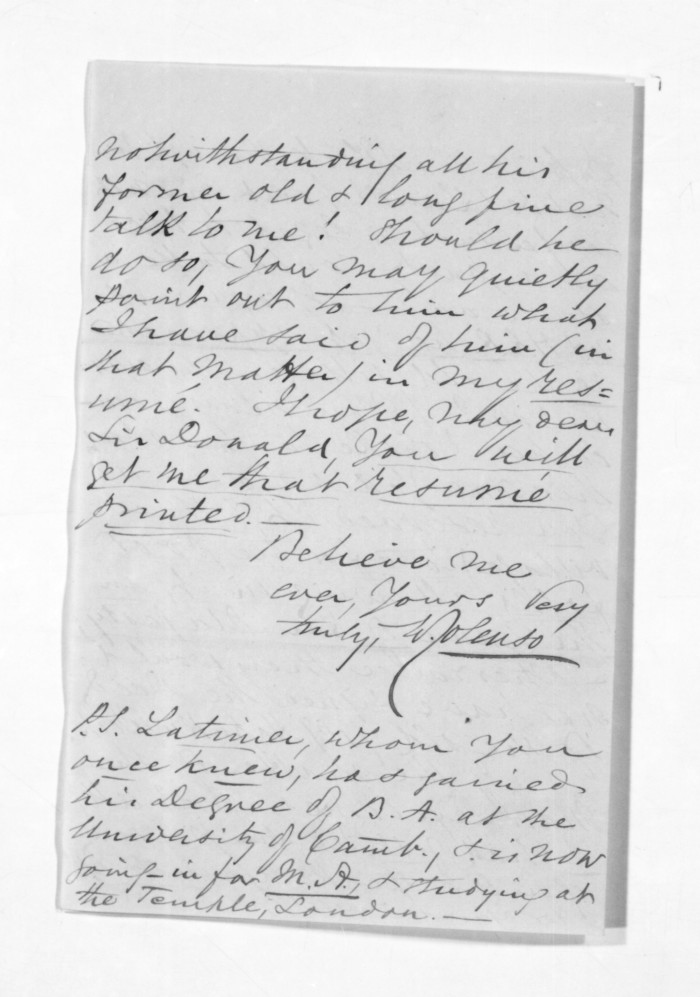 notwithstanding all his
former old & long fine
talk to me! Should he
do so, You may quietly
point out to him what
I have said of him (in
that matter) in my res=
umé. I hope, my dear
Sir Donald, You will
get me that resumé
printed.—
Believe me
ever, Yours Very
truly, W. Colenso
P.S. Latimer, whom You
once knew, has gained
his Degree of B.A. at the
University of Camb., & is now
going-in for M.A., & studying at
the Temple, London.—